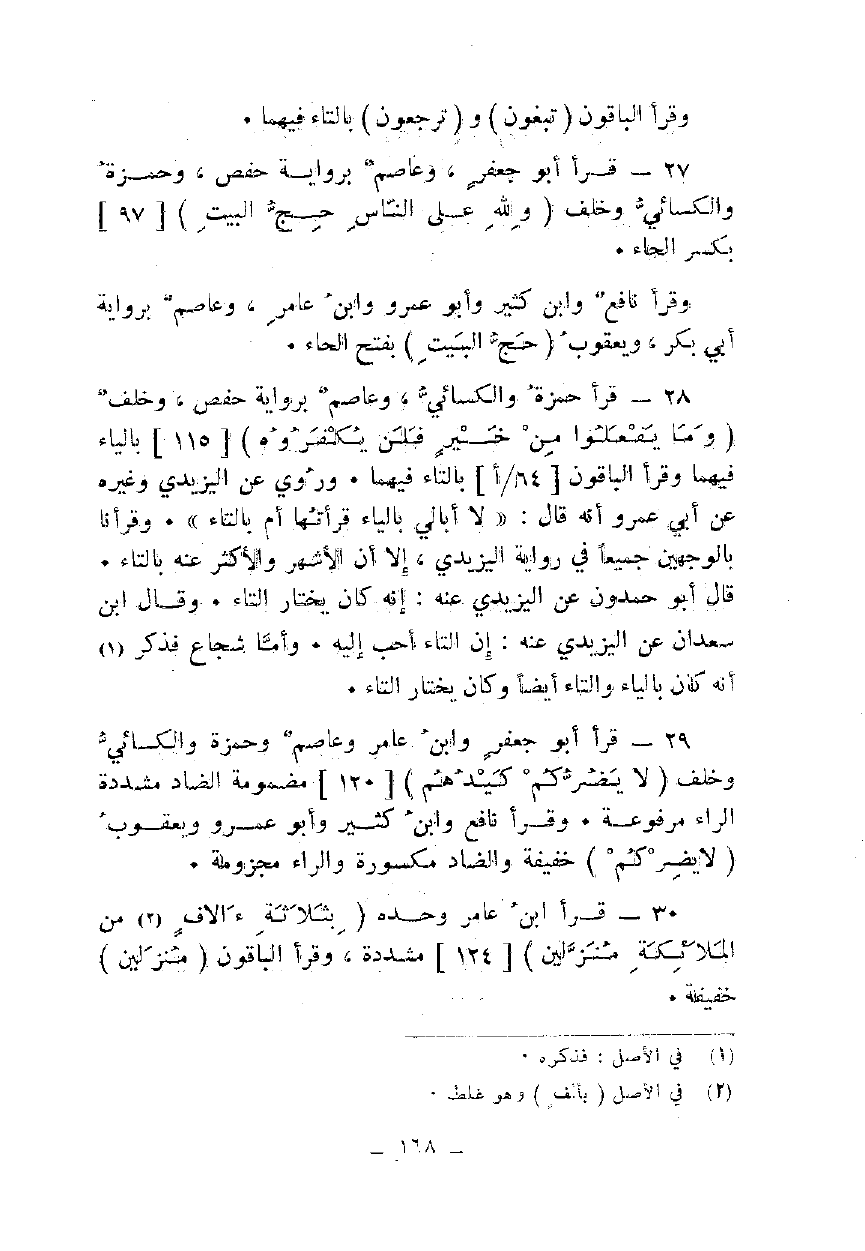 وقرأ الباقون ( تبغون ) و ( ترجعون ) بالتاء فيهما ٠
٢٧ — قــرأ أبو جعفرٍ ، وعاصمٌ بروايــة حفص ، وحمــزةُ
والكسائيُّ وخلف ( وِللهِ عــلى النَّاسِ حِــجُّ البيتِ ) [ ٩٧ ]
بكسر الحاء ٠
وقرأ نافعٌ وابن كثير وأبو عمرو وابنُ عامرٍ ، وعاصمٌ برواية
أبي بكر ، ويعقوبُ ( حَجُّ البَيتِ ) بفتح الحاء ٠
٢٨ — قرأ حمزةُ والكسائيُّ ، وعاصمٌ برواية حفص ، وخلفٌ
( وَمَا يَفْعَلُوا مِنْ خَــيْرٍ فَلَن يُكْفَرُوُه ) [ ١١٥ ] بالياء
فيهما وقرأ الباقون [ ٦٤/أ ] بالتاء فيهما ٠ ورُوي عن اليزيدي وغيره
عن أبي عمرو أنه قال : « لا أبالي بالياء قرأتُها أم بالتاء » ٠ وقرأنا
بالوجهين جميعاً في رواية اليزيدي ، إلا أن الأشهر والأكثر عنه بالتاء ٠
قال أبو حمدون عن اليزيدي عنه : إنه كان يختار التاء ٠ وقــال ابن
سعدان عن اليزيدي عنه : إن التاء أحب إليه ٠ وأمَّا شجاع فذكر (١)
أنه كان بالياء والتاء أيضاً وكان يختار التاء ٠
٢٩ — قرأ أبو جعفرٍ وابنُ عامر وعاصمٌ وحمزة والكسائيُّ
وخلف ( لا يَضُرُّكُمْ كَيْدُهُم ) [ ١٢٠ ] مضمومة الضاد مشددة
الراء مرفوعــة ٠ وقــرأ نافع وابنُ كثــير وأبو عمــرو ويعقــوبُ
( لايضِرْكُمْ ) خفيفة والضاد مكسورة والراء مجزومة ٠
٣٠ — قــرأ ابنُ عامر وحــده ( بِثَلاَثَةِ ءَالافٍ (٢) من
المَلاَئِكَةِ مُنَزَّلين ) [ ١٢٤ ] مشددة ، وقرأ الباقون ( مُنْزَلين )
خفيفة ٠
(١) في الأصل : فذكره ٠
(٢) في الأصل ( بألفٍ ) وهو غلط ٠
— ١٦٨ —